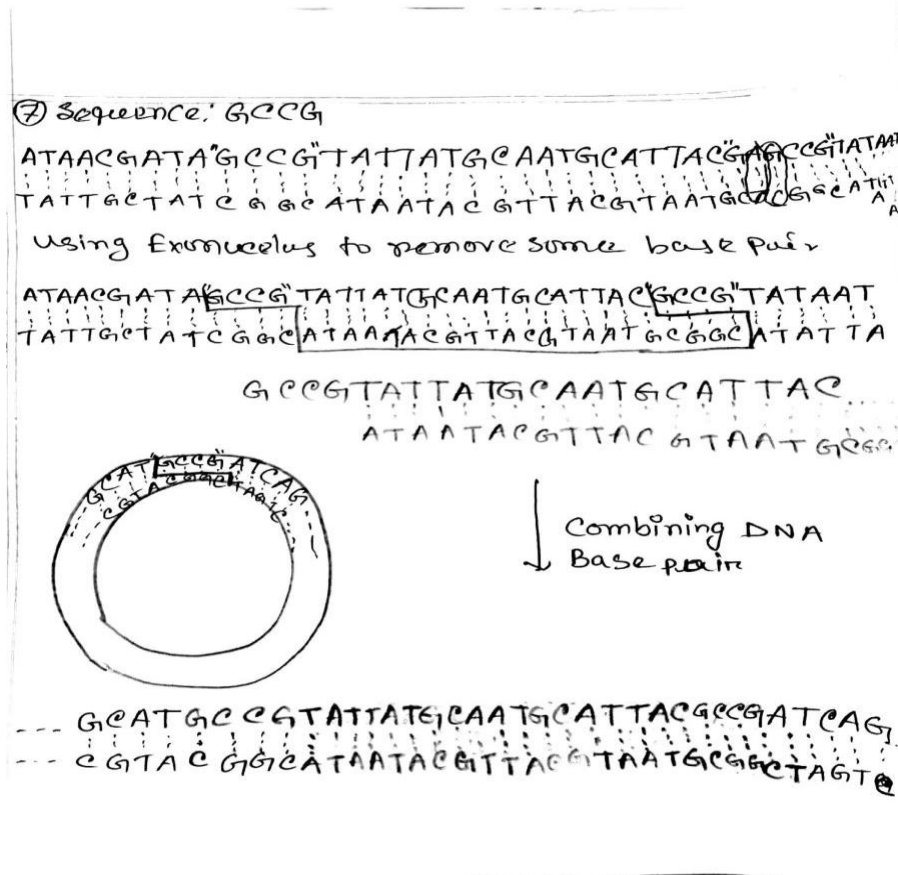 ⑦ Sequence: GCCG
ATAACGATA"GCCG"TATTATGCAATGCATTACGAGCCG"TATAAT
TATTGCTATCGGCATAATACGTTACGTAATGC CGGCAT
Using Exonucelus to remove some base pair
ATAACGATA"GCCG"TATTATGCAATGCATTAC"GCCG"TATAAT
TATTGCTATCGGCATAATACGTTACGTAATGCGGCATATTA
GCCGTATTATGCAATGCATTAC....
ATAATACGTTACGTAATGCGGC
GCAT"GCCG"ATCAG---
---CGTACGGCTAGTC---
Combining DNA
Base pair
--- GCATGCCGTATTATGCAATGCATTACGCCGATCAG
--- CGTACGGCATAATACGTTACGTAATGCGGCTAGTC